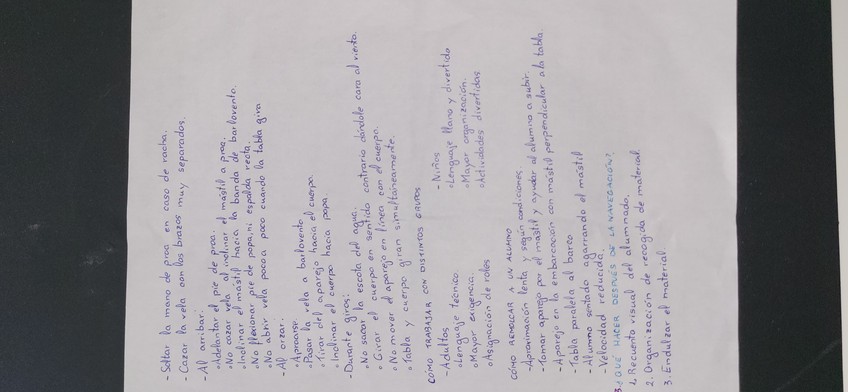 - Soltar la mano de proa en caso de racha.
- Cazar la vela con los brazos muy separados.
- Al arribar.
∘ Adelantar el pie de proa.
∘ No cazar vela al inclinar el mástil a proa.
∘ Inclinar el mástil hacia la banda de barlovento.
∘ No flexionar pie de popa, ni espalda recta.
∘ No abrir vela poco a poco cuando la tabla gira
- Al orzar.
∘ Aproarse
∘ Pasar la vela a barlovento
∘ Tirar del aparejo hacia el cuerpo.
∘ Inclinar el cuerpo hacia popa.
- Durante giros:
∘ No sacar la escota del agua.
∘ Girar el cuerpo en sentido contrario dándole cara al viento.
∘ No mover el aparejo en línea con el cuerpo.
∘ Tabla y cuerpo giran simultáneamente.
CÓMO TRABAJAR CON DISTINTOS GRUPOS
- Adultos
∘ Lenguaje técnico
∘ Mayor exigencia.
∘ Asignación de roles
- Niños
∘ Lenguaje llano y divertido
∘ Mayor organización.
∘ Actividades divertidas
CÓMO REMOLCAR A UN ALUMNO
- Aproximación lenta y según condiciones.
- Tomar aparejo por el mástil y ayudar al alumno a subir.
- Aparejo en la embarcación con mástil perpendicular a la tabla.
- Tabla paralela al barco
- Alumno sentado agarrando el mástil
- Velocidad reducida.
3. ¿QUÉ HACER DESPUÉS DE LA NAVEGACIÓN?
1. Recuento visual del alumnado.
2. Organización de recogida de material.
3. Endulzar el material.